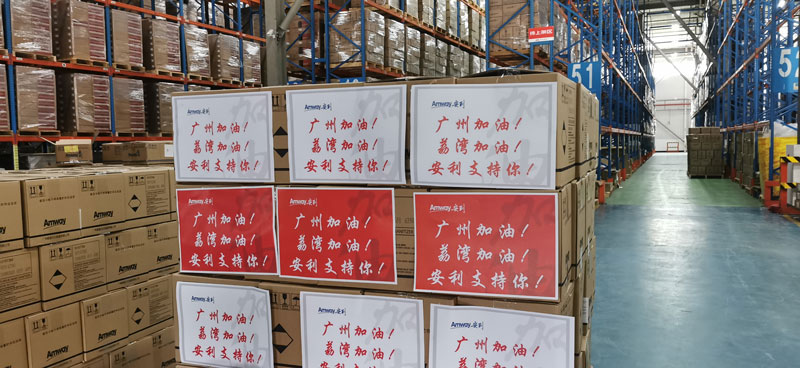 待上架区
51
52
Amway 安利
广州加油!
荔湾加油!
安利支持你!
Amway 安利
广州加油!
荔湾加油!
安利支持你!
Amway 安利
广州加油!
荔湾加油!
安利支持你!
Amway 安利
广州加油!
荔湾加油!
安利支持你!
Amway 安利
广州加油!
荔湾加油!
安利支持你!
Amway 安利
广州加油!
荔湾加油!
安利支持你!
Amway 安利
广州加油!
荔湾加油!
安利支持你!
Amway 安利
广州加油!
荔湾加油!
安利支持你!
Amway 安利
广州加油!
荔湾加油!
Amway
Amway
Amway
Amway